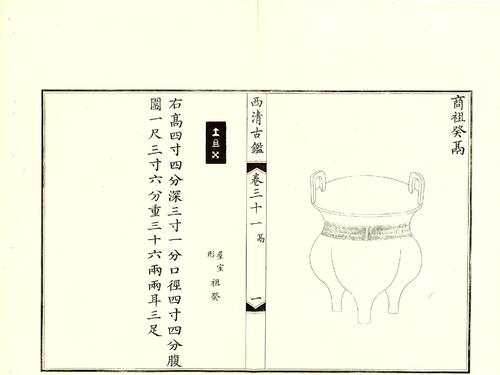 商祖癸鬲
西清古鑑
卷三十一
鬲
一
屋室
形
祖癸
右高四寸四分深三寸一分口徑四寸四分腹
圍一尺三寸六分重三十六兩兩耳三足